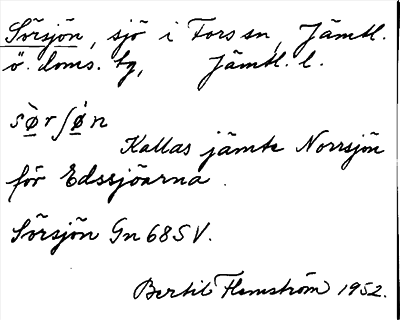 Sörsjön, sjö i Fors sn, Jämtl.
ö. doms. tg, Jämtl. l.
sø̀rʃø̀n
Kallas jämte Norrsjön
för Edssjöarna.
Sörsjön Gn 68 SV.
Bertil Flemström 1952.